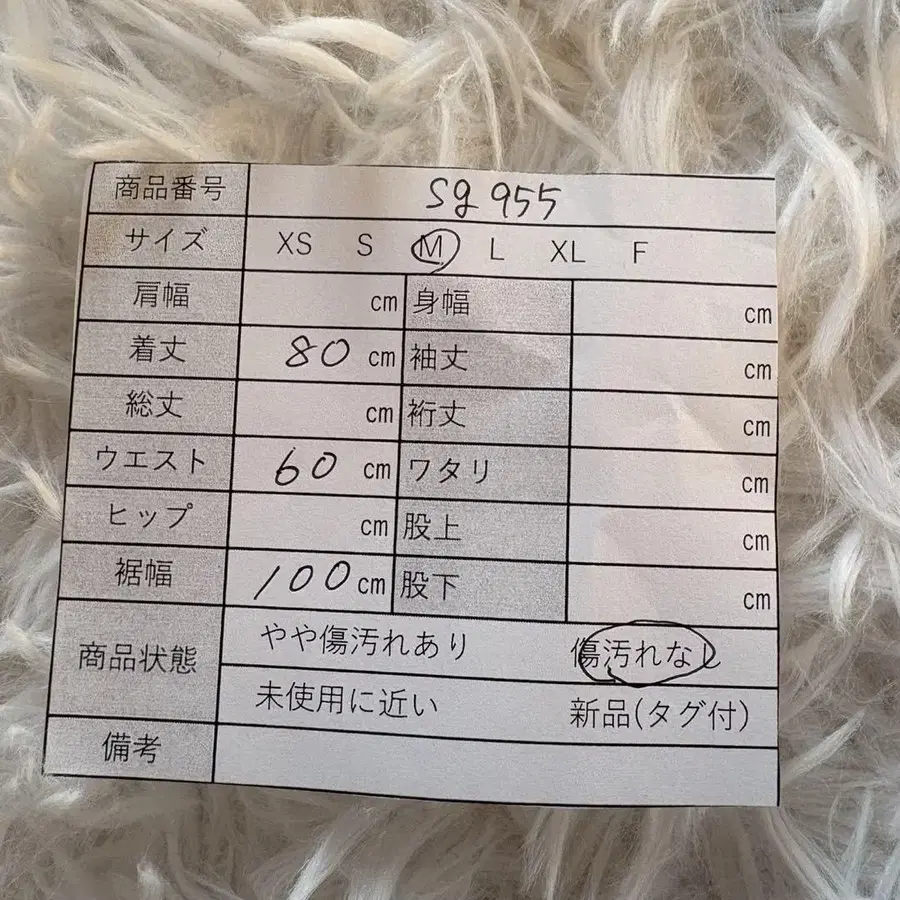 商品番号 sg 955
サイズ XS S M L XL F
肩幅 cm 身幅 cm
着丈 80 cm 袖丈 cm
総丈 cm 裄丈 cm
ウエスト 60 cm ワタリ cm
ヒップ cm 股上 cm
裾幅 100 cm 股下 cm
商品状態 やや傷汚れあり 傷汚れなし
未使用に近い 新品(タグ付)
備考